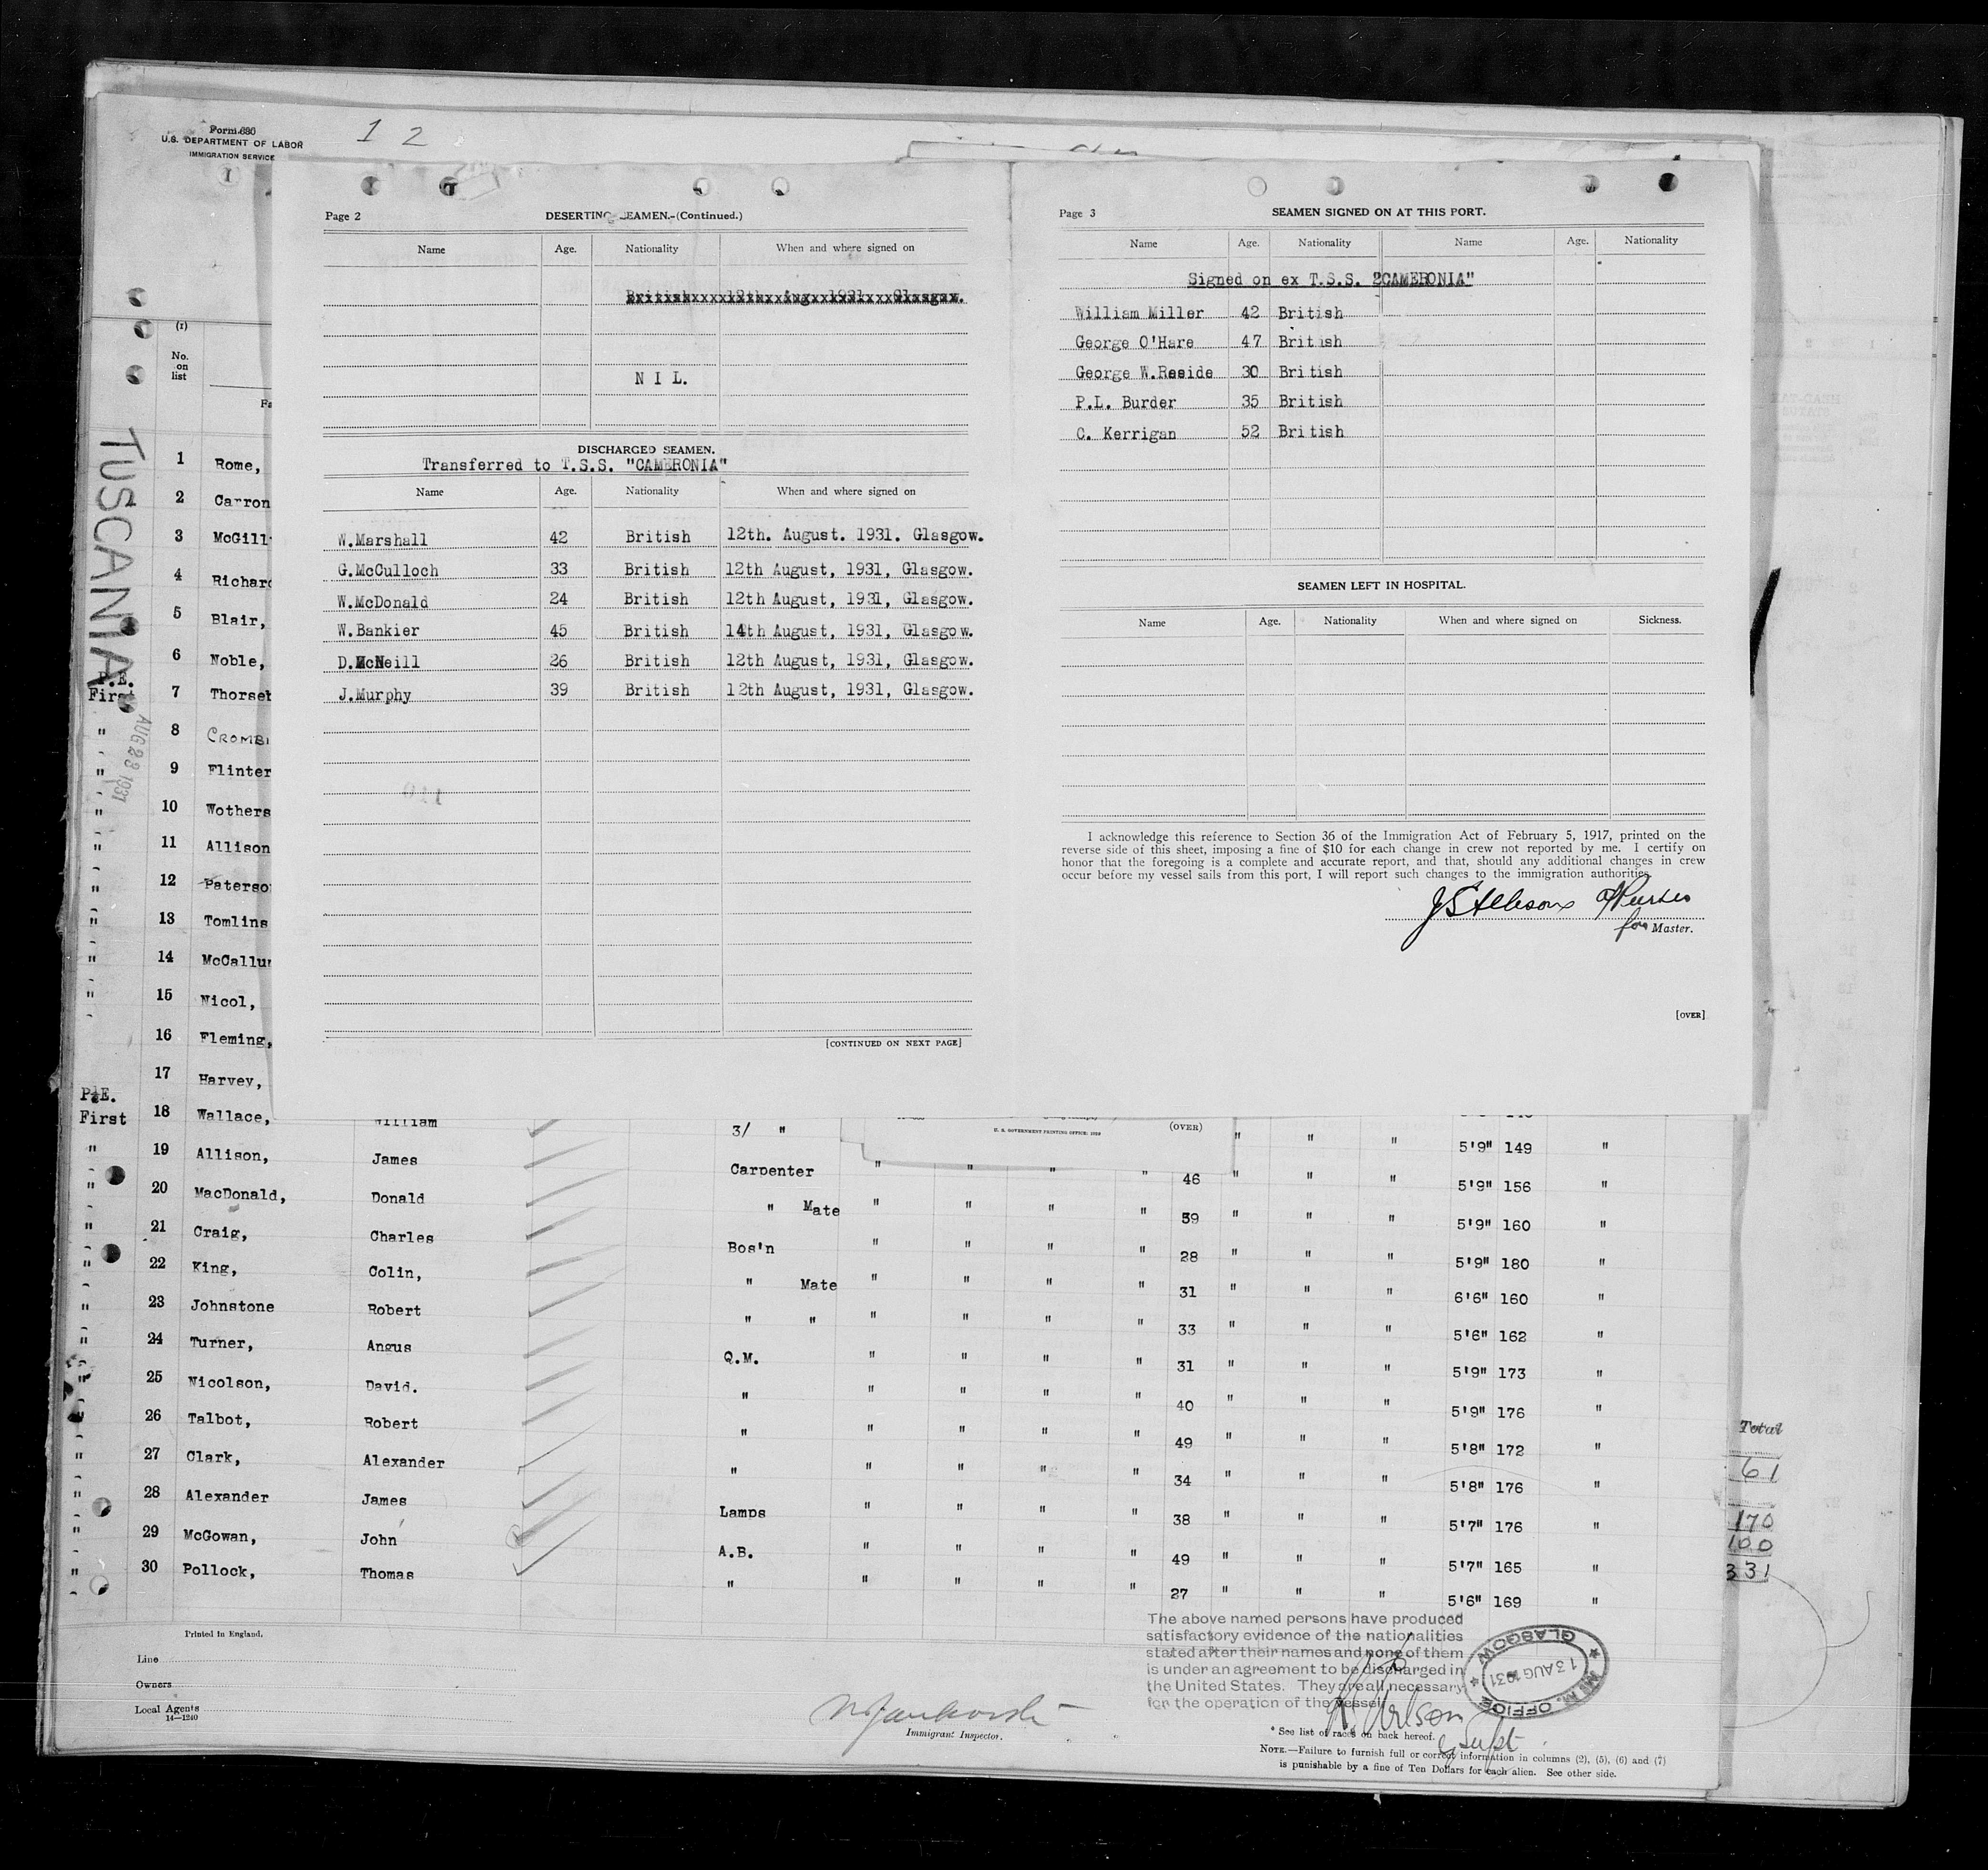 Form 680
U.S. DEPARTMENT OF LABOR
IMMIGRATION SERVICE
1 2
TUSCANIA
AUG 23 1931
(1)
No. on list
Page 2
DESERTING SEAMEN.-(Continued.)
Name Age. Nationality When and where signed on
British 12th Aug 1931 Glasgow.
N I L.
DISCHARGED SEAMEN.
Transferred to T.S.S. "CAMERONIA"
Name Age. Nationality When and where signed on
W.Marshall 42 British 12th. August. 1931. Glasgow.
G.McCulloch 33 British 12th August, 1931, Glasgow.
W.McDonald 24 British 12th August, 1931, Glasgow.
W.Bankier 45 British 14th August, 1931, Glasgow.
D.McNeill 26 British 12th August, 1931, Glasgow.
J.Murphy 39 British 12th August, 1931, Glasgow.
[CONTINUED ON NEXT PAGE]
Page 3
SEAMEN SIGNED ON AT THIS PORT.
Name Age. Nationality Name Age. Nationality
Signed on ex T.S.S. "CAMERONIA"
William Miller 42 British
George O'Hare 47 British
George W.Reside 30 British
P.L. Burder 35 British
C. Kerrigan 52 British
SEAMEN LEFT IN HOSPITAL.
Name Age. Nationality When and where signed on Sickness.
I acknowledge this reference to Section 36 of the Immigration Act of February 5, 1917, printed on the
reverse side of this sheet, imposing a fine of $10 for each change in crew not reported by me. I certify on
honor that the foregoing is a complete and accurate report, and that, should any additional changes in crew
occur before my vessel sails from this port, I will report such changes to the immigration authorities.
for Master.
[OVER]
1 Rome,
2 Carron
3 McGill
4 Richard
5 Blair,
6 Noble,
P.E.
First 7 Thorse
" 8 CROMBI
" 9 Flinter
" 10 Wothers
" 11 Allison
" 12 Paterso
" 13 Tomlins
" 14 McCallu
" 15 Nicol,
16 Fleming,
17 Harvey,
P.E.
First 18 Wallace, William 3/ " " " " 5'9" 149 "
U. S. GOVERNMENT PRINTING OFFICE
(OVER)
" 19 Allison, James Carpenter " " " " 46 " " " 5'9" 156 "
" 20 MacDonald, Donald " Mate " " " " 39 " " " 5'9" 160 "
" 21 Craig, Charles Bos'n " " " " 28 " " " 5'9" 180 "
" 22 King, Colin, " Mate " " " " 31 " " " 6'6" 160 "
" 23 Johnstone Robert " " " " " " 33 " " " 5'6" 162 "
" 24 Turner, Angus Q.M. " " " " 31 " " " 5'9" 173 "
" 25 Nicolson, David. " " " " " 40 " " " 5'9" 176 "
" 26 Talbot, Robert " " " " " 49 " " " 5'8" 172 "
" 27 Clark, Alexander " " " " " 34 " " " 5'8" 176 "
" 28 Alexander James Lamps " " " " 38 " " " 5'7" 176 "
" 29 McGowan, John A.B. " " " " 49 " " " 5'7" 165 "
" 30 Pollock, Thomas " " " " " 27 " " " 5'6" 169 "
Total
61
170
100
331
Printed in England.
Line
Owners
Local Agents
14—1240
Immigrant Inspector.
The above named persons have produced
satisfactory evidence of the nationalities
stated after their names and none of them
is under an agreement to be discharged in
the United States. They are all necessary
for the operation of the vessel.
M. M. OFFICE GLASGOW
13 AUG 1931
Supt.
* See list of races on back hereof.
NOTE.—Failure to furnish full or correct information in columns (2), (5), (6) and (7)
is punishable by a fine of Ten Dollars for each alien. See other side.